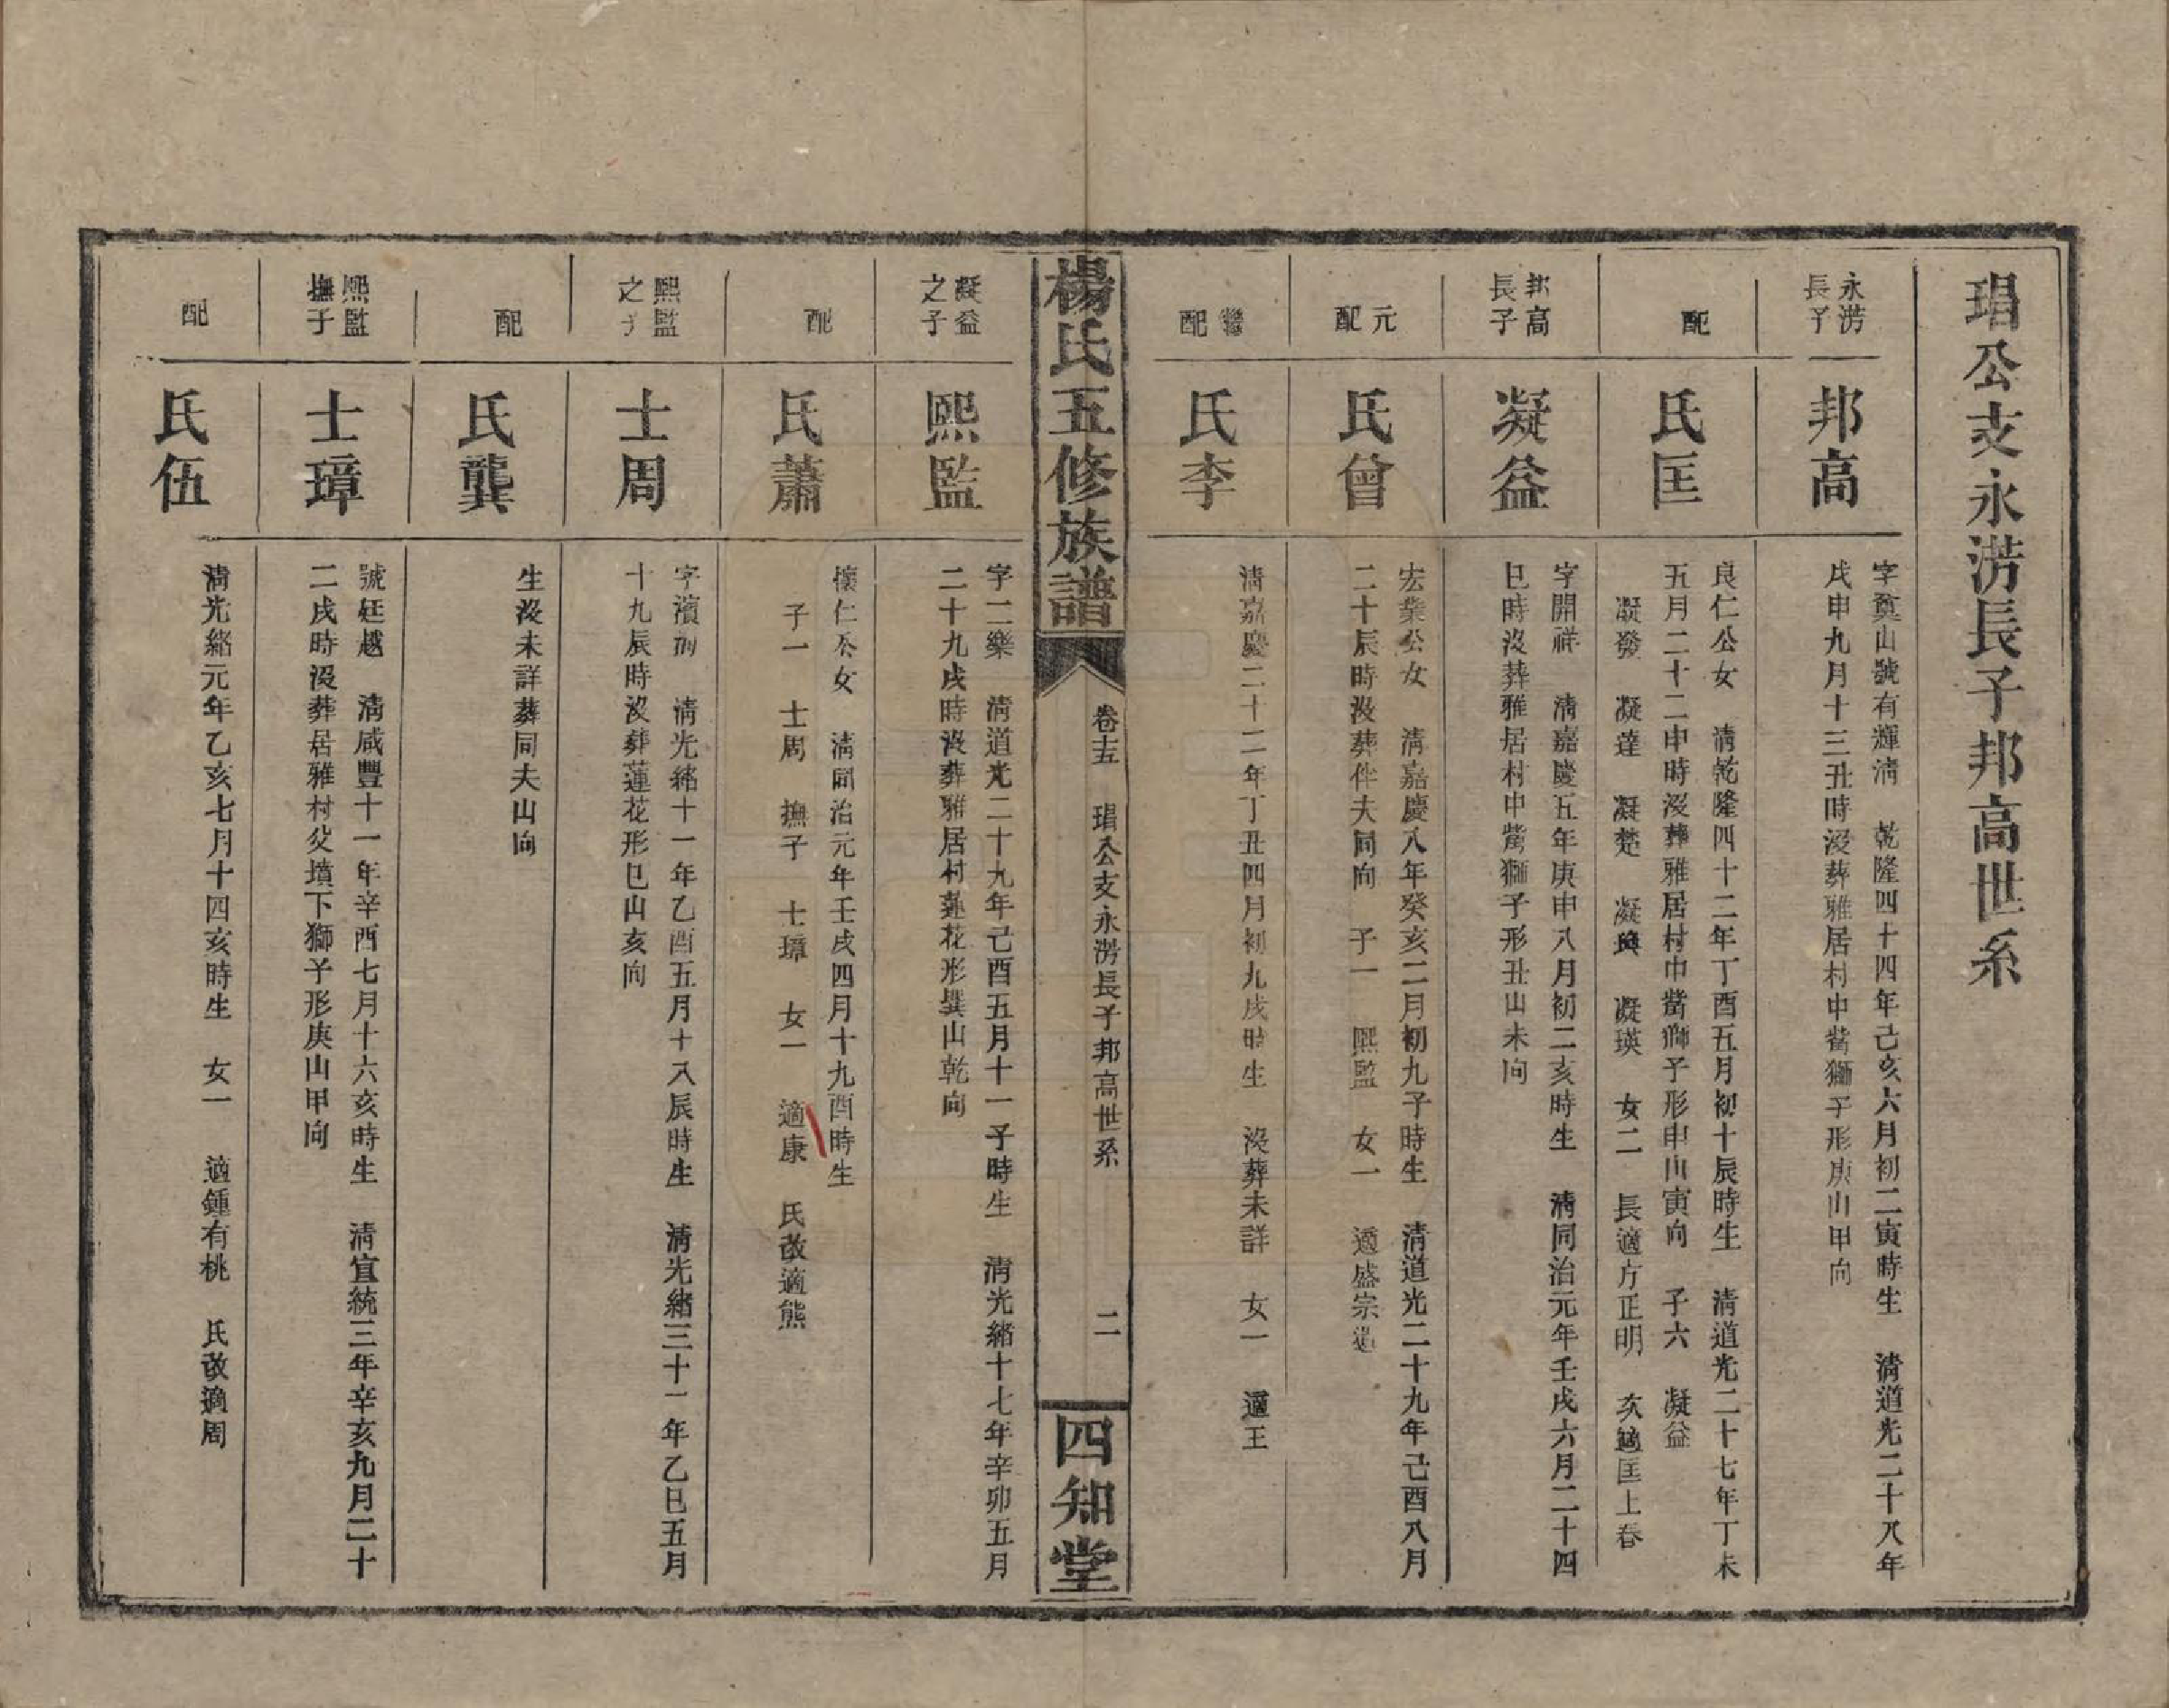 琩公支永澇長子邦高世系
永澇長子
邦高
字奠山號有輝淸　乾隆四十四年己亥六月初二寅時生　淸道光二十八年
戌申九月十三丑時沒葬雅居村中觜獅子形庚山甲向
配
氏匡
良仁公女　淸乾隆四十二年丁酉五月初十辰時生　淸道光二十七年丁未
五月二十二申時沒葬雅居村中觜獅子形申山寅向　子六　凝益
凝發　凝達　凝楚　凝興　凝瑛　女二　長適方正明　次適匡上春
邦高長子
凝益
字開祥　淸嘉慶五年庚申八月初二亥時生　淸同治元年壬戌六月二十四
巳時沒葬雅居村中觜獅子形丑山未向
元配
氏曾
宏業公女　淸嘉慶八年癸亥二月初九子時生　淸道光二十九年己酉八月
二十辰時沒葬伴夫同向　子一　熙監　女一　適盛宗
繼配
氏李
淸嘉慶二十二年丁丑四月初九戌時生　沒葬未詳　女一　適王
楊氏五修族譜
卷十五　琩公支永澇長子邦高世系
二
四知堂
凝益之子
熙監
字二樂　淸道光二十九年己酉五月十一子時生　淸光緒十七年辛卯五月
二十九戌時沒葬雅居村蓮花形巽山乾向
配
氏蕭
懷仁公女　淸同治元年壬戌四月十九酉時生
子一　士周　撫子　士璋　女一　適康　氏改適熊
熙監之子
士周
字濱　淸光緒十一年乙酉五月十八辰時生　淸光緒三十一年乙巳五月
十九辰時沒葬蓮花形巳山亥向
配
氏龔
生沒未詳葬同夫山向
熙監撫子
士璋
號廷越　淸咸豐十一年辛酉七月十六亥時生　淸宣統三年辛亥九月二十
二戌時沒葬居雅村父墳下獅子形庚山甲向
配
氏伍
淸光緒元年乙亥七月十四亥時生　女一　適鍾有桃　氏改適周